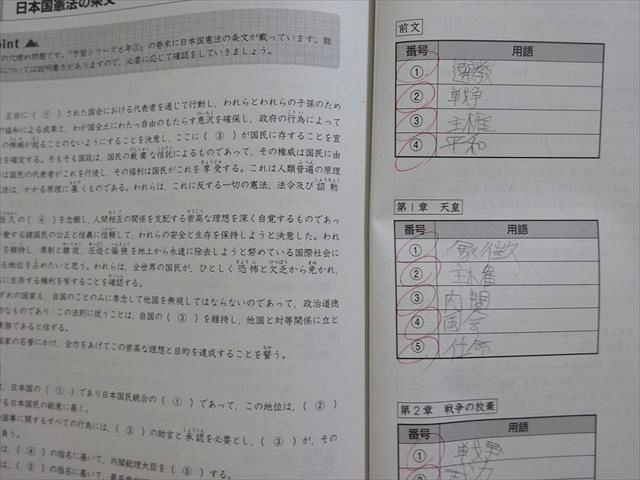 日本国憲法の条文
oint
の穴埋め問題です。『予習シリーズ6年上』の巻末に日本国憲法の条文が載っています。難
については説明書きがありますので、必要に応じて確認をしていきましょう。
正当に（①）された国会における代表者を通じて行動し、われらとわれらの子孫のため
の協和による成果と、わが国全土にわたって自由のもたらす恵沢を確保し、政府の行為によって
の惨禍が起ることのないようにすることを決意し、ここに（③）が国民に存することを宣
を確定する。そもそも国政は、国民の厳粛な信託によるものであって、その権威は国民に由
は国民の代表者がこれを行使し、その福利は国民がこれを享受する。これは人類普遍の原理
法は、かかる原理に基くものである。われらは、これに反する一切の憲法、法令及び詔勅
恒久の（④）を念願し、人間相互の関係を支配する崇高な理想を深く自覚するものであっ
愛する諸国民の公正と信義に信頼して、われらの安全と生存を保持しようと決意した。われ
を維持し、専制と隷従、圧迫と偏狭を地上から永遠に除去しようと努めている国際社会に
る地位を占めたいと思う。われらは、全世界の国民が、ひとしく恐怖と欠乏から免かれ、
に生存する権利を有することを確認する。
ずれの国家も、自国のことのみに専念して他国を無視してはならないのであって、政治道徳
なものであり、この法則に従うことは、自国の（③）を維持し、他国と対等関係に立と
責務であると信ずる。
国家の名誉にかけ、全力をあげてこの崇高な理想と目的を達成することを誓う。
は、日本国の（①）であり日本国民統合の（①）であって、この地位は、（②）
する日本国民の総意に基く。
国事に関するすべての行為には、（③）の助言と承認を必要とし、（③）が、その
負う。
は、（④）の指名に基いて、内閣総理大臣を（⑤）する。
は、（③）の指名に基いて、
前文
番号 用語
① 選挙
② 戦争
③ 主権
④ 平和
第1章 天皇
番号 用語
① 象徴
② 主権
③ 内閣
④ 国会
⑤ 任命
第2章 戦争の放棄
番号 用語
① 戦争
② 武力